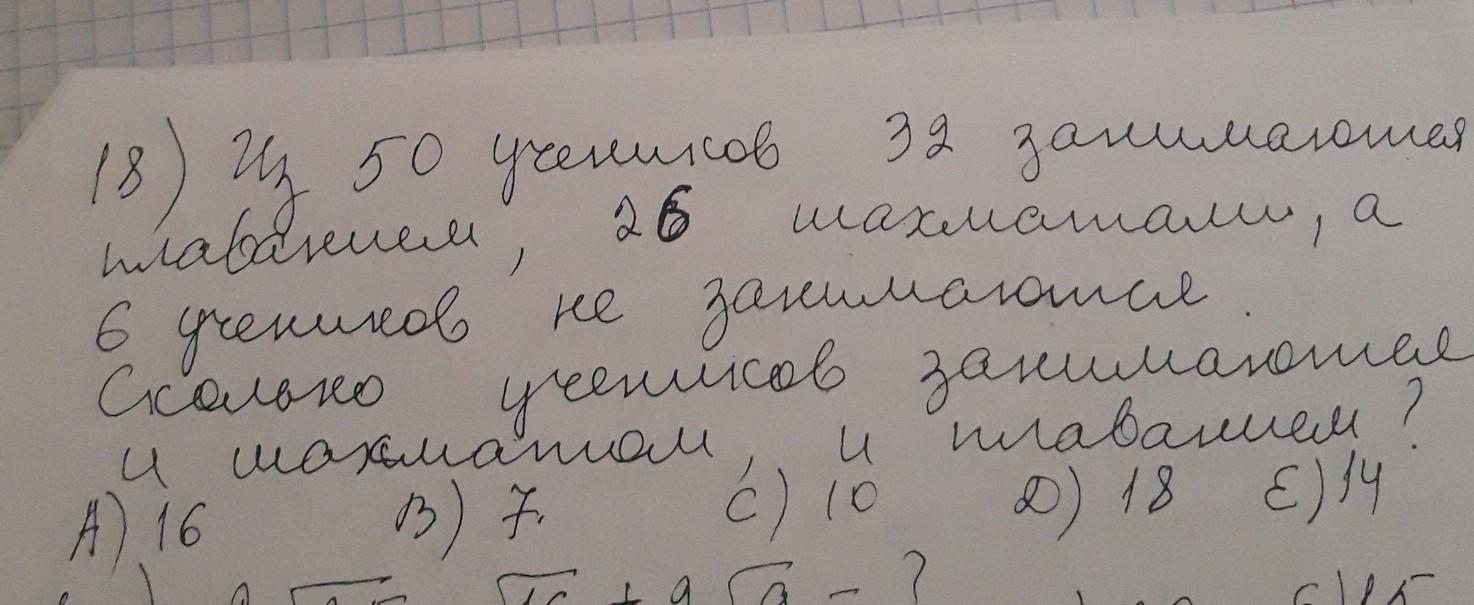 18) Из 50 учеников 32 занимаются
плаванием, 26 шахматами, а
6 учеников не занимаются.
Сколько учеников занимаются
и шахматом, и плаванием?
A) 16 B) 7. C) 10 D) 18 E) 14